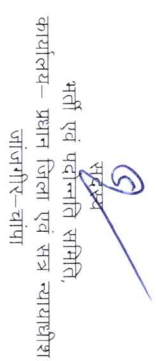 सदस्य
भर्ती एवं पदोन्नति समिति,
कार्यालय– प्रधान जिला एवं सत्र न्यायाधीश
जांजगीर–चांपा